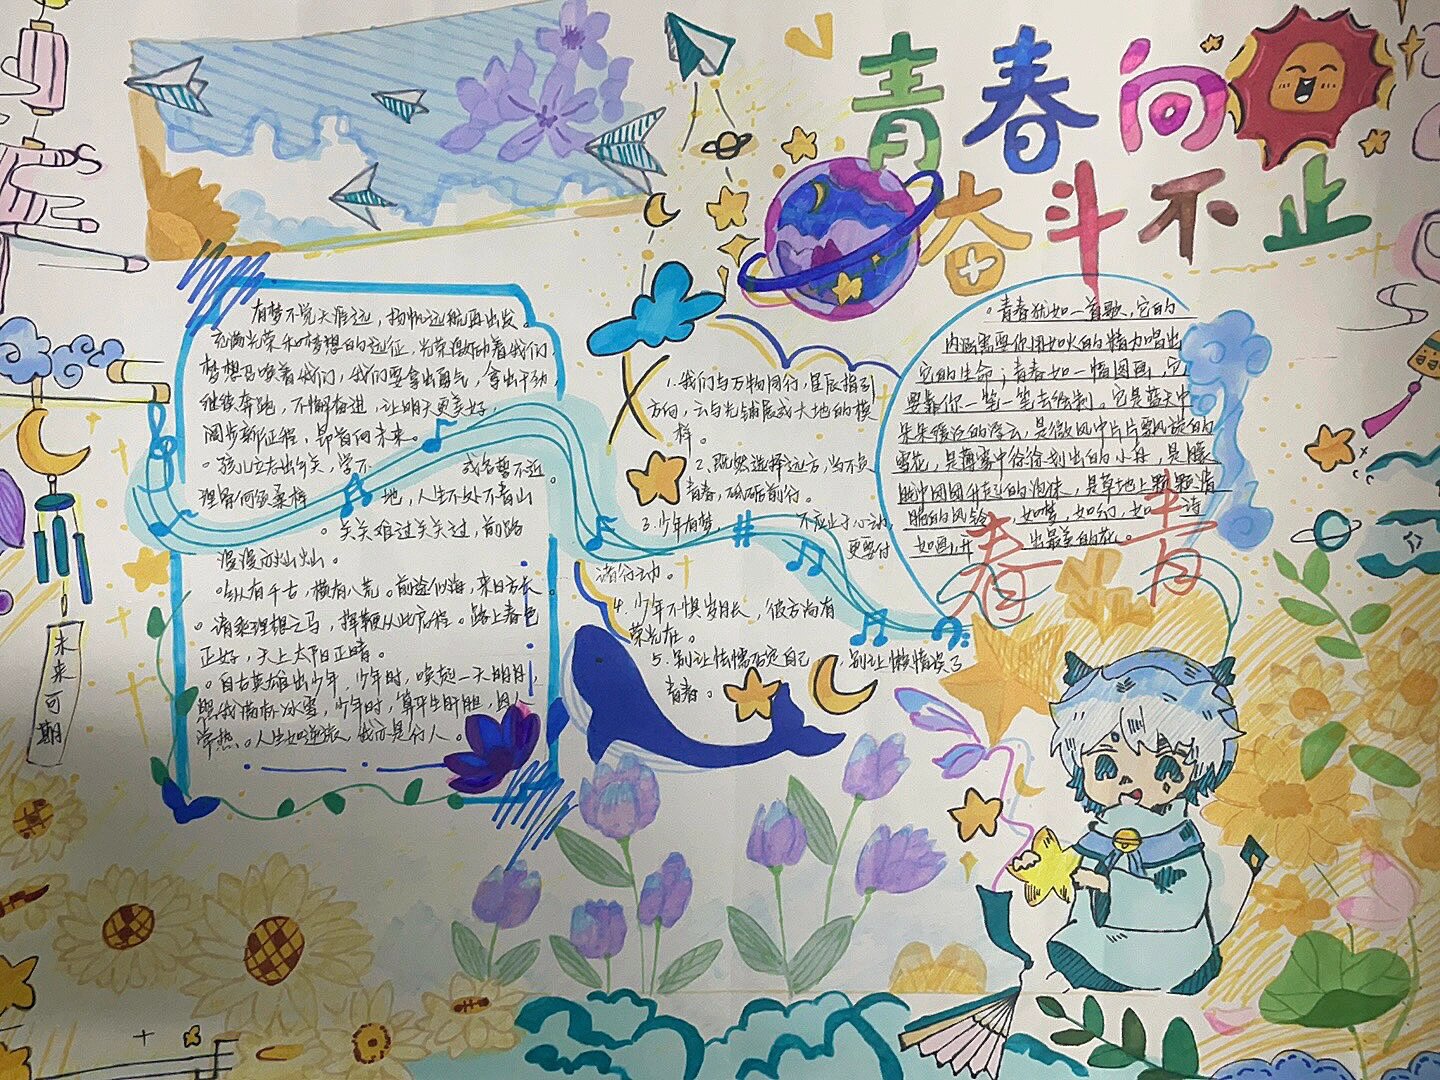 青春向
奋斗不止
有梦不觉天涯远，扬帆远航再出发。
充满光荣和梦想的远征，光荣激励着我们，
梦想召唤着我们，我们要拿出勇气，拿出干劲，
继续奔跑，不懈奋进，让明天更美好，
阔步新征程，昂首向未来。
孩儿立志出乡关，学不
或名誓不还
理骨何须桑梓
地，人生不处不青山
关关难过关关过，前路
漫漫亦灿灿。
纵有千古，横有八荒。前途似海，来日方长
请乘理想之马，挥鞭从此启程。路上春色
正好，天上太阳正晴。
自古英雄出少年，少年时，唤起一天明月，
照我满怀冰雪，少年时，算平生肝胆，因人
常热。人生如逆旅，我亦是行人。
1.我们与万物同行，星辰指引
方向，云与光铺展成大地的模
样。
2.既然选择远方，当不负
青春，砥砺前行。
3.少年有梦，
不应止于心动，
更要付
诸行动。
4.少年不惧岁月长，彼方尚有
荣光在。
5.别让怯懦否定自己，别让懒惰误了
青春。
青春犹如一首歌，它的
内涵需要你用如火的精力唱出
它的生命；青春如一幅图画，它
要靠你一笔一笔去绘制。它是蓝天中
朵朵缓泛的浮云，是微风中片片飘旋的
雪花，是薄雾中徐徐划出的小舟，是朦
胧中团团升起的泡沫，是草地上颗颗清
脆的风铃，如梦，如幻，如
诗
如画，开
出最美的花。
青
春
未来可期